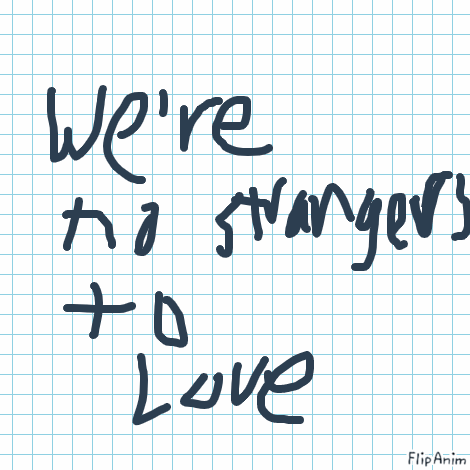 We're
no strangers
to
Love
FlipAnim